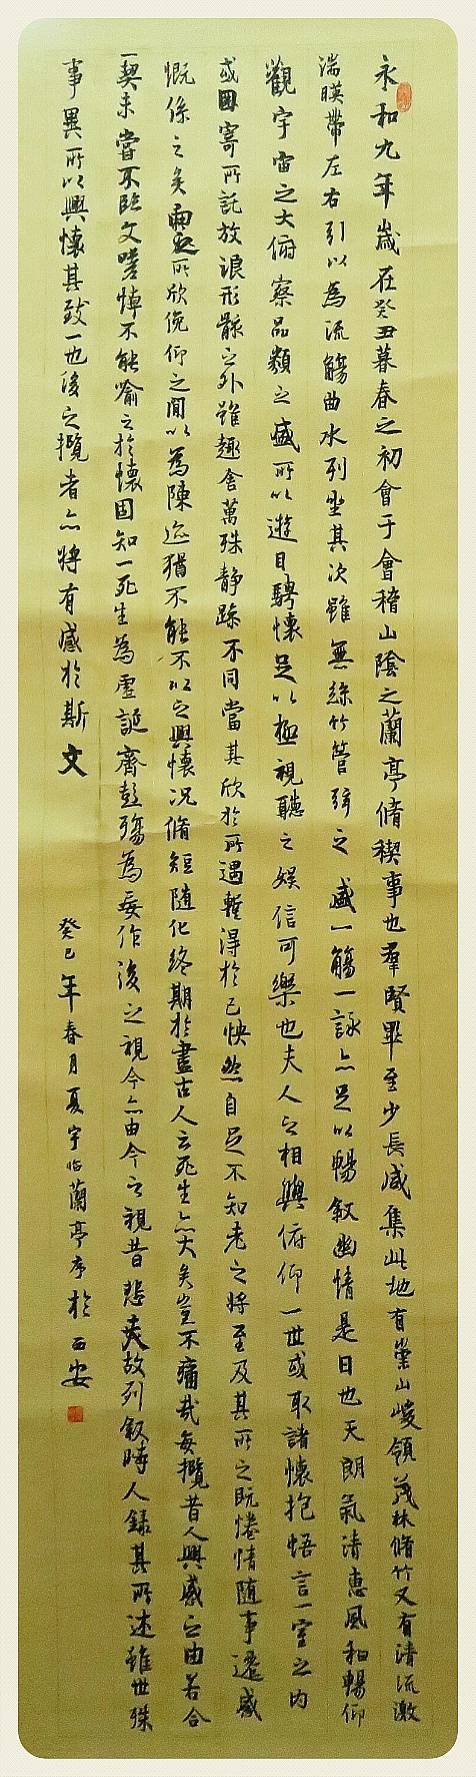 永和九年歲在癸丑暮春之初會于會稽山陰之蘭亭脩稧事也羣賢畢至少長咸集此地有崇山峻領茂林脩竹又有清流激
湍暎帶左右引以為流觴曲水列坐其次雖無絲竹管弦之盛一觴一詠亦足以暢叙幽情是日也天朗氣清惠風和暢仰
觀宇宙之大俯察品類之盛所以遊目騁懷足以極視聽之娛信可樂也夫人之相與俯仰一世或取諸懷抱悟言一室之內
或因寄所託放浪形骸之外雖趣舍萬殊静躁不同當其欣於所遇暫得於己怏然自足不知老之將至及其所之既惓情隨事遷感
慨係之矣向之所欣俛仰之間以為陳迹猶不能不以之興懷况脩短隨化終期於盡古人云死生亦大矣豈不痛哉每攬昔人興感之由若合
一契未嘗不臨文嗟悼不能喻之於懷固知一死生為虛誕齊彭殤為妄作後之視今亦由今之視昔悲夫故列叙時人錄其所述雖世殊
事異所以興懷其致一也後之攬者亦將有感於斯文 癸巳年春月夏宇临蘭亭序於西安